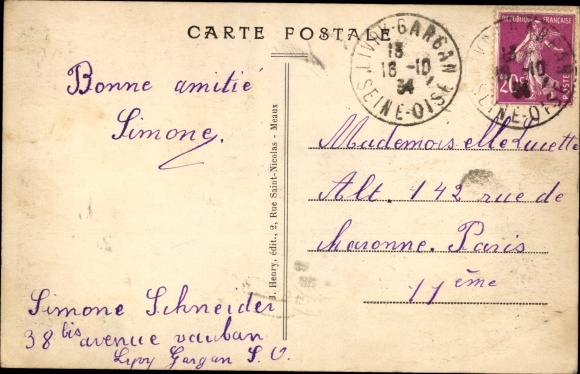 CARTE POSTALE
Bonne amitié
Simone.
J. Henry, édit., 2, Rue Saint-Nicolas - Meaux
LIVRY-GARGAN
13
16-10
34
SEINE-OISE
REPUBLIQUE FRANÇAISE
20c
POSTES
Mademoiselle Lucette
Alt. 142 rue de
Maronne. Paris
11ème
Simone Schneider
38bis avenue vauban
Livy Gargan S. O.